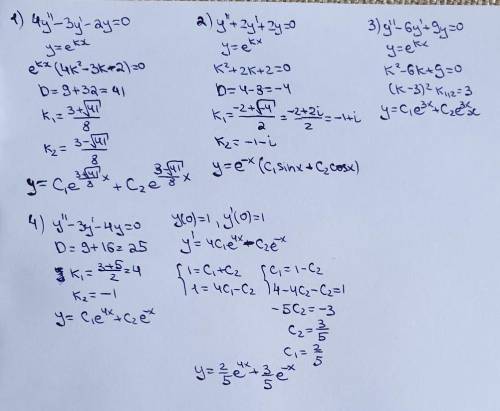 1) 4y''-3y'-2y=0
y=e^kx
e^kx(4k²-3k-2)=0
D=9+32=41
k₁=(3+√41)/8
k₂=(3-√41)/8
y=C₁e^((3+√41)/8 x)+C₂e^((3-√41)/8 x)
2) y''+2y'+2y=0
y=e^kx
k²+2k+2=0
D=4-8=-4
k₁=(-2+√-4)/2=(-2+2i)/2=-1+i
k₂=-1-i
y=e^-x(C₁sinx+C₂cosx)
3) y''-6y'+9y=0
y=e^kx
k²-6k+9=0
(k-3)² k₁,₂=3
y=C₁e^3x+C₂e^3x x
4) y''-3y'-4y=0
D=9+16=25
k₁=(3+5)/2=4
k₂=-1
y=C₁e^4x+C₂e^-x
y(0)=1, y'(0)=1
y'=4C₁e^4x-C₂e^-x
{1=C₁+C₂ {C₁=1-C₂
{1=4C₁-C₂ {4-4C₂-C₂=1
-5C₂=-3
C₂=3/5
C₁=2/5
y=2/5 e^4x+3/5 e^-x